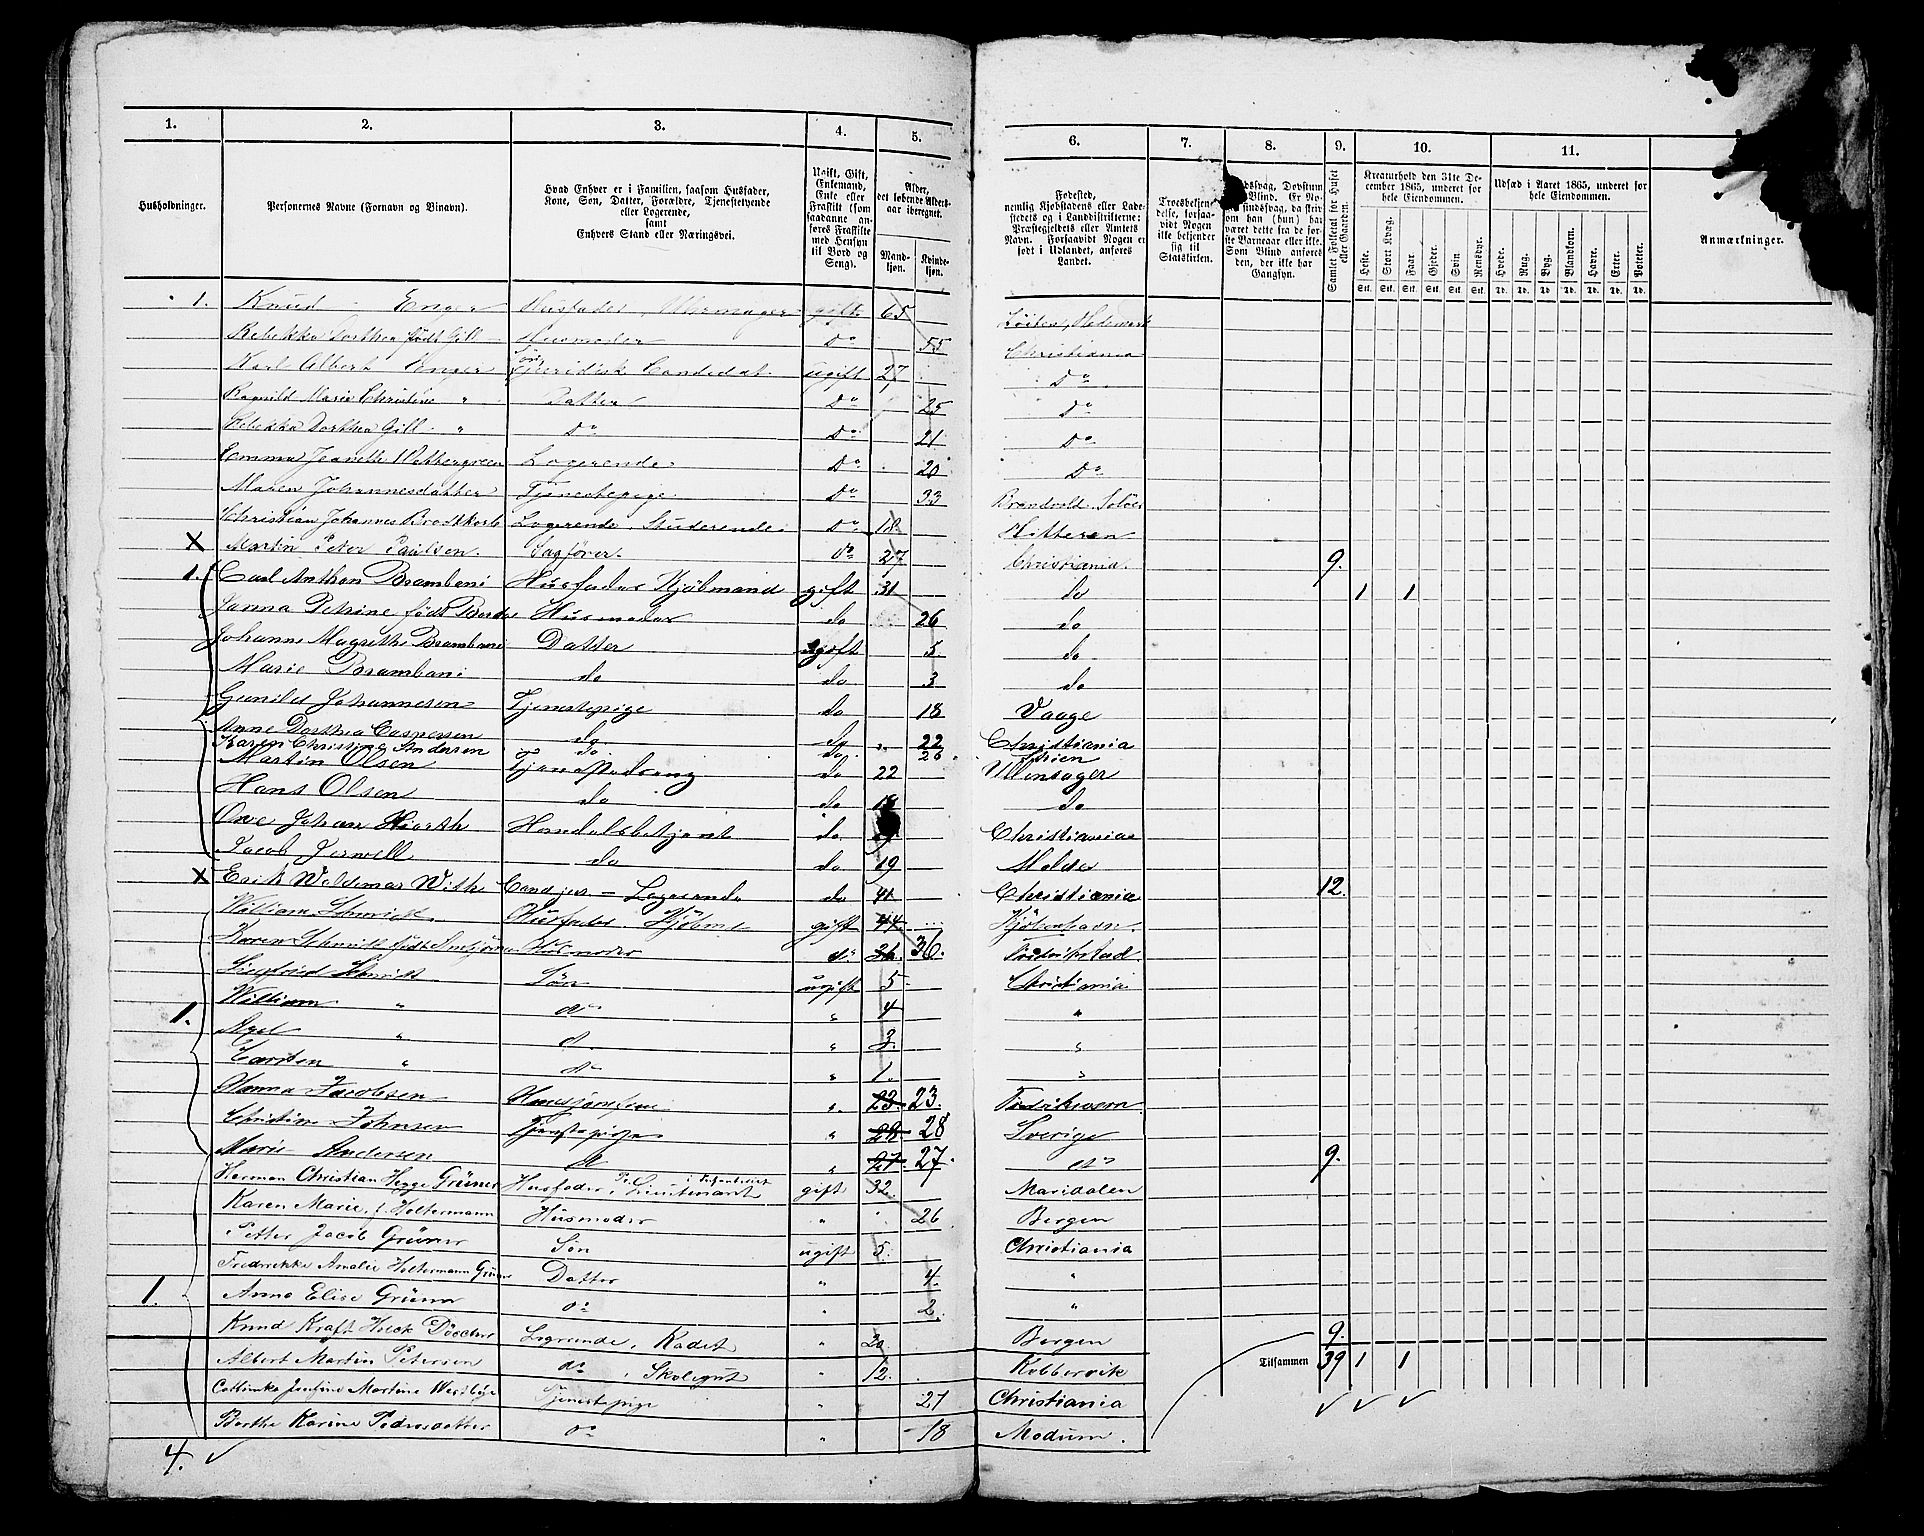 1. 2. 3. 4. 5. 6. 7. 8. 9. 10. 11.
Husholdninger.
Personernes Navne (Fornavn og Binavn).
Hvad Enhver er i Familien, saasom Husfader,
Kone, Søn, Datter, Forældre, Tjenestetyende
eller Logerende,
samt
Enhvers Stand eller Næringsvei.
Ugift, Gift,
Enkemand,
Enke eller
Fraskilt (som
saadanne an-
føres Fraskilte
med Hensyn
til Bord og
Seng).
Alder,
det løbende Alders-
aar iberegnet.
Mand-
kjøn.
Kvinde-
kjøn.
Fødested,
nemlig Kjøbstadens eller Lade-
stedets og i Landdistrikterne:
Præstegjeldets eller Amtets
Navn. Forsaavidt Nogen er
født i Udlandet, anføres
Landet.
Troesbekjen-
delse, forsaa-
vidt Nogen
ikke bekjender
sig til
Statskirken.
Samlet Folketal for Huset
eller Gaarden.
Kreaturhold den 31te De-
cember 1865, underet for
hele Eiendommen.
Udsæd i Aaret 1865, underet for
hele Eiendommen.
Anmærkninger.
Heste. Stort Kvæg. Faar. Gjeder. Svin. Rensdyr. Hvede. Rug. Byg. Blandkorn. Havre. Erter. Poteter.
Stk. Stk. Stk. Stk. Stk. Stk. Td. Td. Td. Td. Td. Td. Td.
1. Knud Enger Husfader, Uhrmager gift 65 Löiten, Hedemark
Rebekka Dorthea født Gill Husmoder Do 55 Christiania
Karl Albert Enger Søn Juridisk Candidat ugift 27 Do
Ragnild Marie Christine " Datter Do 25 Do
Rebekka Dorthea Gill " Do Do 21 Do
Emma Jeanette Logerende Do 20 Do
Maren Johannesdatter Tjenestepige Do 33 Brandvold, Solöer
Christian Johannes Brodtkorb Logerende, Studerende Do 18 Hitteren
X Martin Peter Paulsen. Sagfører. do 27 Christiania. 9.
1. Carl Anthon Brambani Husfader Kjöbmand gift 31 do 1 1
Janna Petrine født Husmoder do 26 do
Johanne Magrethe Brambani Datter ugift 5 do
Marie Brambani do do 3 do
Gunild Johannesen Tjenestepige do 18 Vaage
Anne Dorthea Caspersen do do 22 Christiania
Karen Christine Andersen do do 26
Martin Olsen Tjenestedreng do 22 Ullensager
Hans Olsen do do do
Ove Johan Hiorth Handelsbetjent do Christiania
Jacob do do 19 Molde
X Erik Woldemar With Cand jur - Logerende do 41 Christiania 12.
William Schmidt Husfader. gift 44 Kjöbenhavn
Karen Schmidt født Husmoder do 36 36. Fredrikstad
Siegfried Schmidt Sön ugift 5 Christiania
1. William " do " 4 "
Axel " d. " 3. "
Carsten " do " 1. "
Hanna Jacobsen Huusjomfru " 23. 23. Fredriksværn
Christine Johnsen Tjenstepige " 28. 28 Sverige
Marie Andersen do " 27. 27. do 9.
Herman Christian Hegge Grüner Husfader, Lieutenant gift 32 Maridalen
Karen Marie, f. Holtermann Husmoder " 26 Bergen
Petter Jacob Grüner Søn ugift 5. Christiania
Fredrikke Amalie Holtermann Grüner Datter " 4. "
1. Anna Elise Grüner do " 2. "
Knud Kraft Logerende, Kadet " 20 Bergen 9.
Albert Martin Petersen do, Skolegut " 12. Kobbervik Tilsammen 39 1 1
Josefine Martine Tjenestepige " 27 Christiania
Berthe Karine Pedersdatter do " 18 Modum.
4.